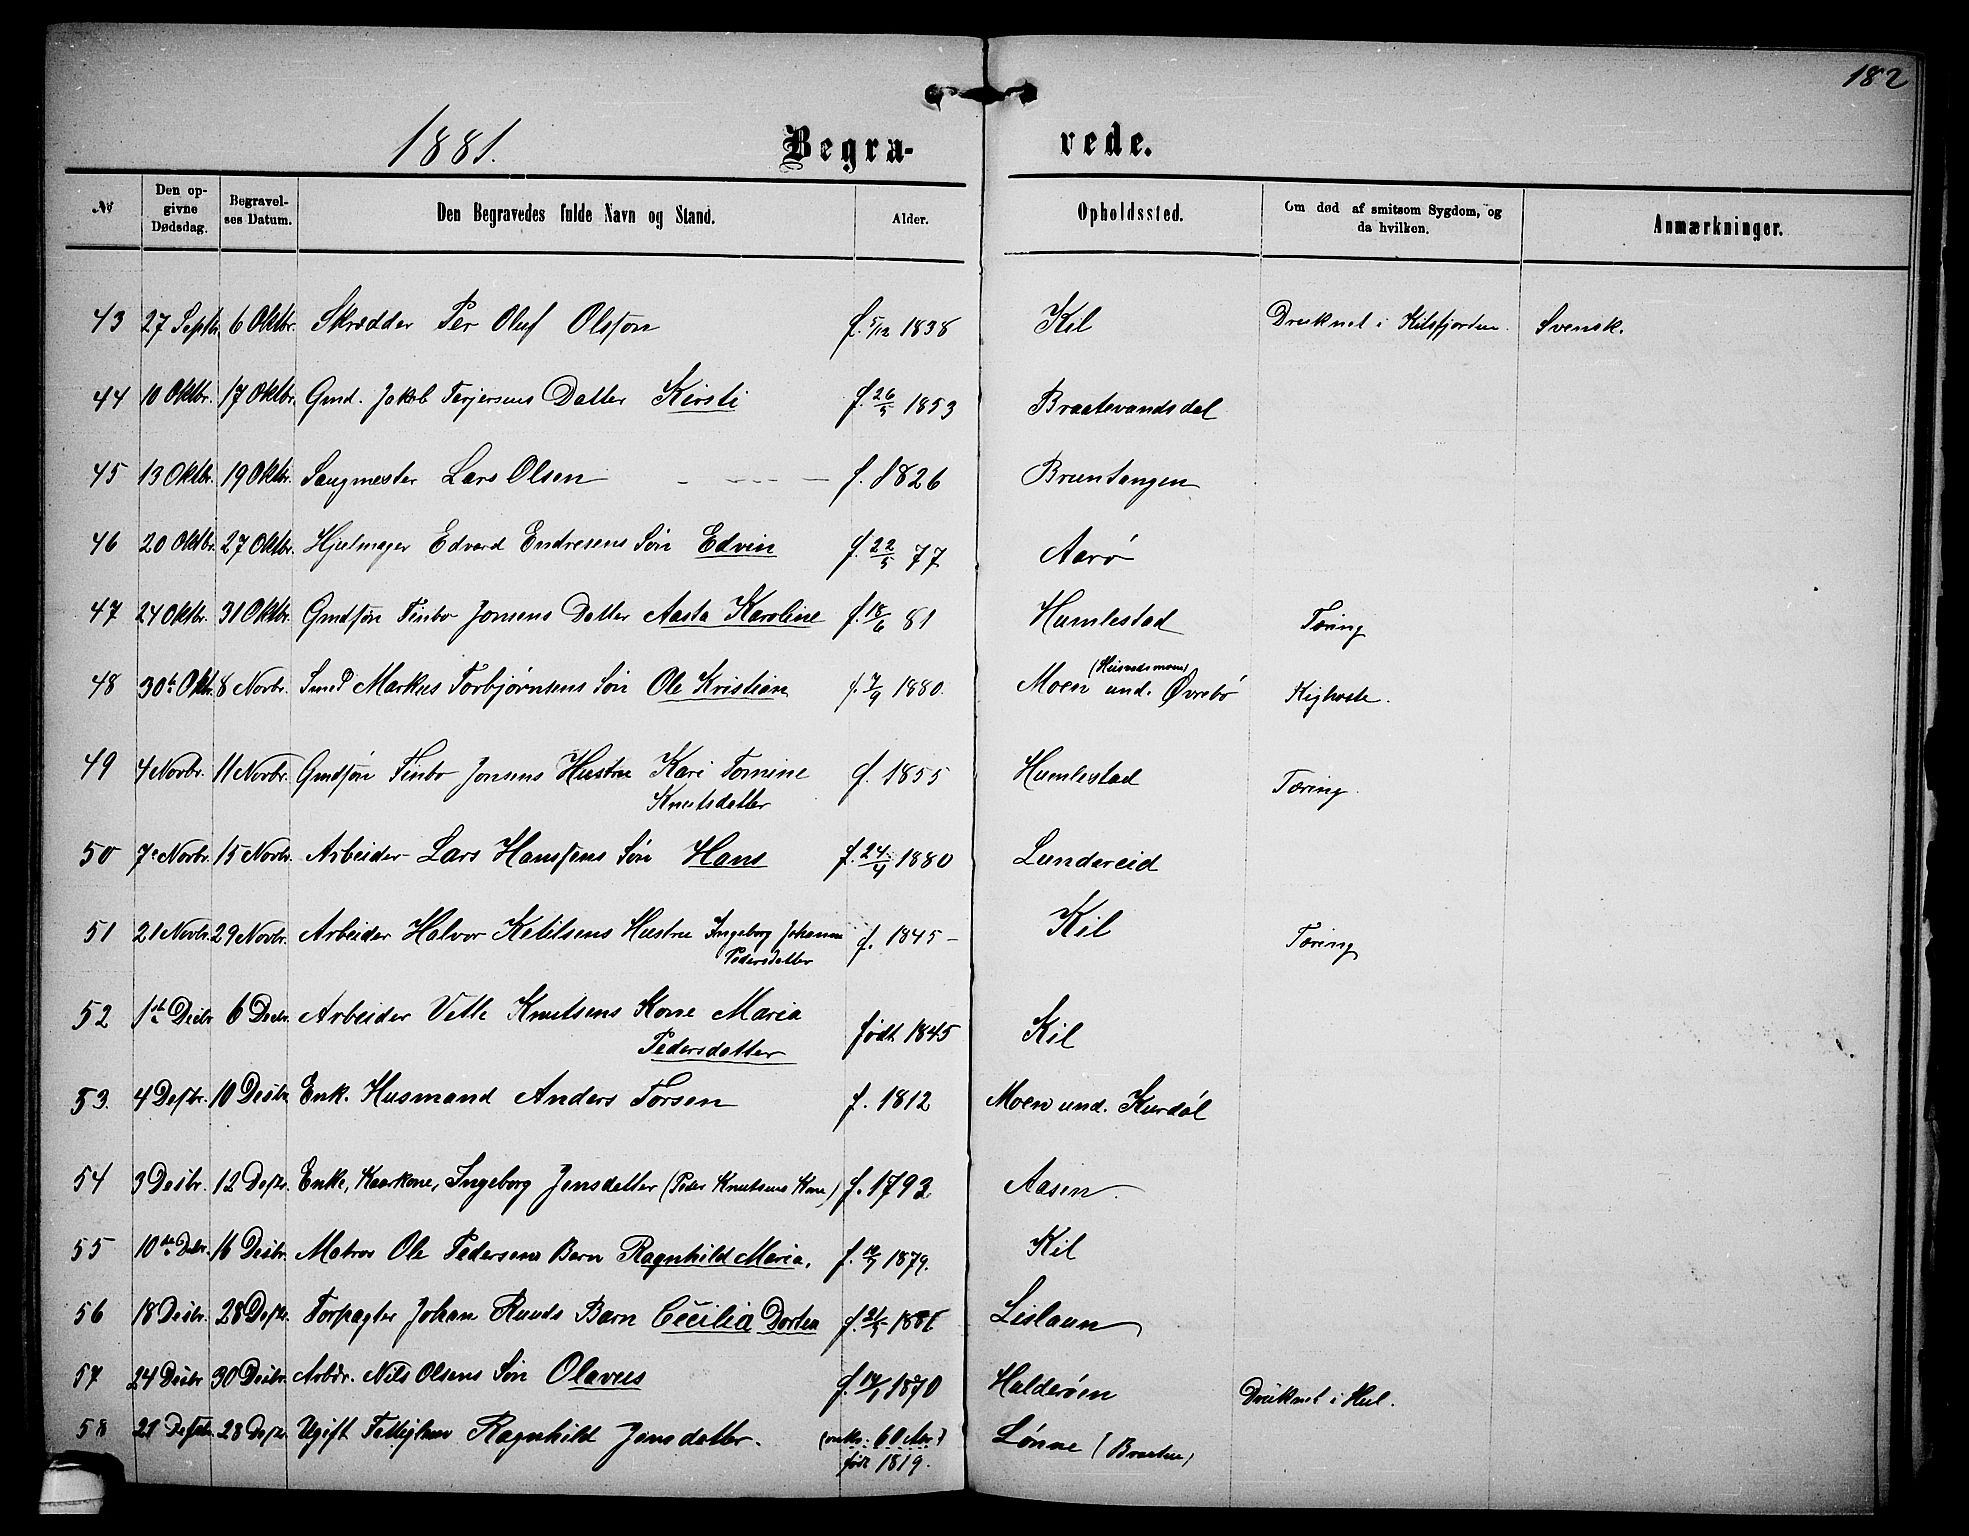 182
1881. Begra- vede.
№ Den op- givne Dødsdag. Begravel- ses Datum. Den Begravedes fulde Navn og Stand. Alder. Opholdssted. Om død af smitsom Sygdom, og da hvilken. Anmærkninger.
43 27 Septbr. 6 Oktbr. Skrædder Per Oluf Olsson f. 5/12 1838 Kil Druknet i Kilsfjorden. Svensk.
44 10 Oktbr. 17 Oktbr. Gmd. Jakob Terjersens Datter Kirsti f. 26/5 1853 Braatevandsdal
45 13 Oktbr. 19 Oktbr. Saugmester Lars Olsen f. 1826 Bruntangen
46 20 Oktbr. 27 Oktbr. Hjulmager Edvard Endresens Søn Edvin f. 22/5 77 Aarø
47 24 Oktbr. 31 Oktbr. Gmdsøn Finbo Jonsens Datter Aasta Karoline f. 18/6 81 Humlestad Tæring
48 30te Oktb. 8 Novbr. Smed Markus Torbjørnsens Søn Ole Kristian f. 7/9 1880. Moen und. Øvrebø Kighoste.
49 4 Novbr. 11 Novbr. Gmdsøn Finbo Jonsens Hustru Kari Tomine f. 1855 Humlestad Tæring
Knutsdatter
50 7e Novbr. 15 Novbr. Arbeider Lars Hanssens Søn Hans f. 24/4 1880 Lundereid
51 21 Novbr. 29 Novbr. Arbeider Halvor Ketilsens Hustru Ingeborg Johanne f. 1845 Kil Tæring
Pedersdatter
52 1ste Desbr 6 Desbr. Arbeider Vetle Knutsens Kone Maria født 1845 Kil
Pedersdatter
53. 4 Desbr. 10 Desbr. Enk. Husmand Anders Torsen f. 1812 Moen und. Kurdøl
54 3 Desbr. 12 Desbr. Enke, Kaarkone, Ingeborg Jensdatter (Peder Knutsens Kone) f. 1793 Aasen
55 10de Desbr. 16 Desbr. Matros Ole Pedersens Barn Ragnhild Maria, 1879. Kil
56 18 Desbr. 28 Desbr. Forpagter Johan Ruuds Barn Cecilia Dortea 1881 Leslaun
57 24 Desbr 30 Desbr. Arbdr. Nils Olsens Søn Olavus 1870 Halderøen Druknet i Hul.
58 21 Desbr. 28 Desbr. Ugift Fattiglem Ragnhild Jensdatter. (omkr. 60 Aar) Lønne (Braaten)
født 1819.